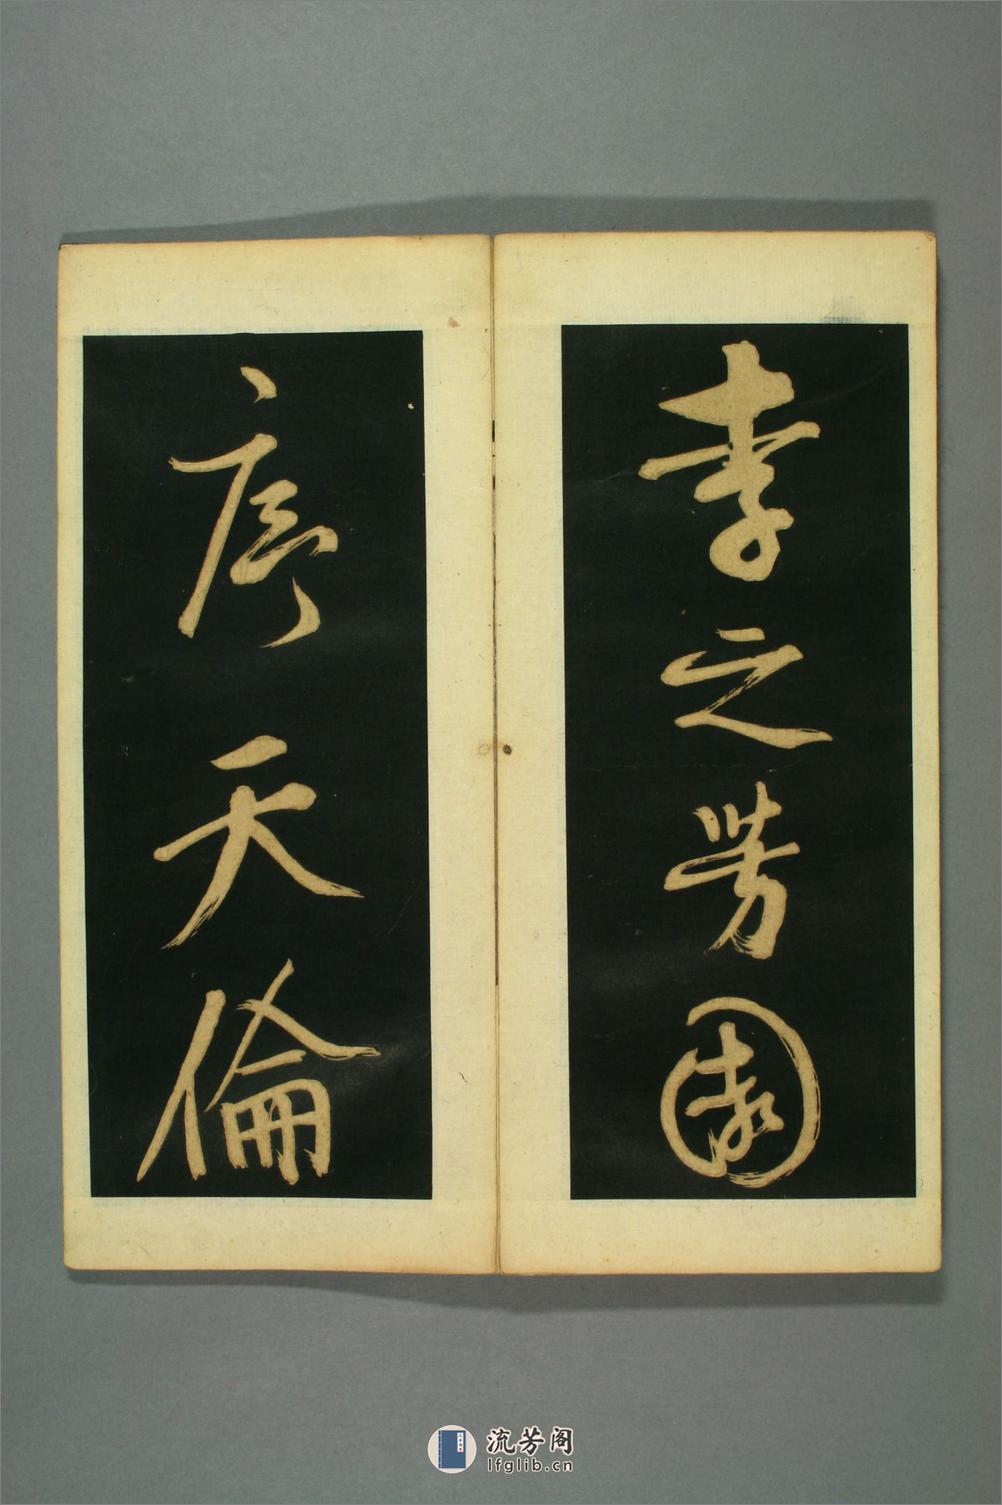 李之芳園
序天倫
流芳阁
lfglib.cn